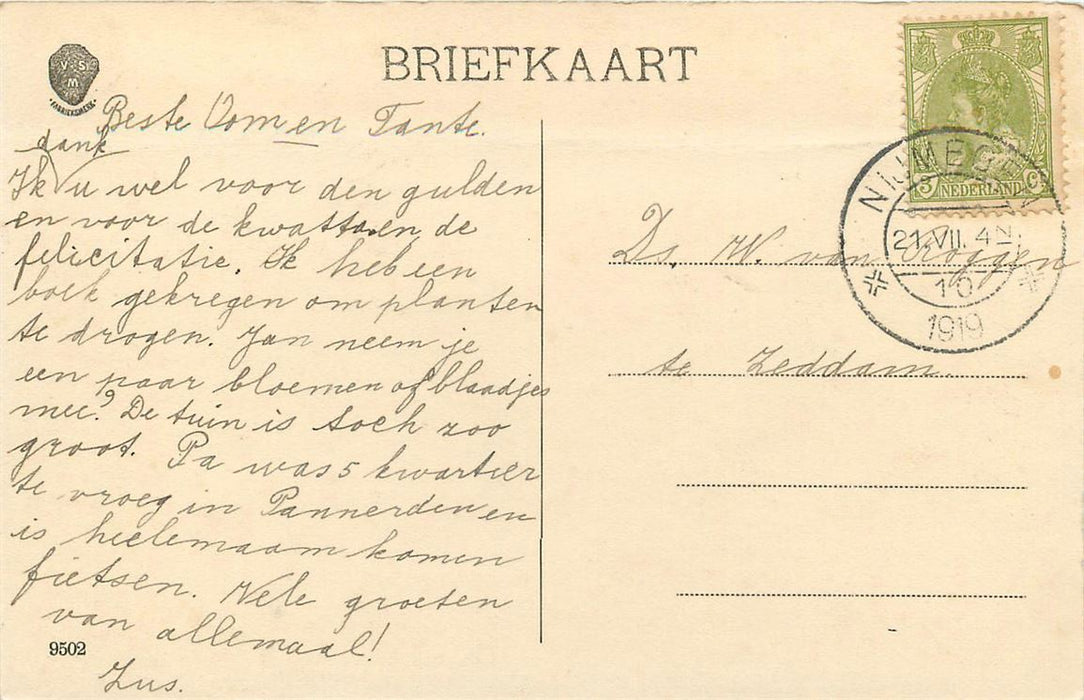 BRIEFKAART
V.S.
M
FABRIEKSMERK
Beste Oom en Tante.
dank
Ik u wel voor den gulden
en voor de kwatta en de
felicitatie. Ik heb een
boek gekregen om planten
te drogen. Jan neem je
een paar bloemen of blaadjes
mee? De tuin is toch zoo
groot. Pa was 5 kwartier
te vroeg in Pannerden en
is heelemaam komen
fietsen. Vele groeten
van allemaal!
Zus.
9502
3 NEDERLAND C
NIJMEGEN
21.VII. 4 N
10
1919
Ds. W. van Roggen
te Zeddam.